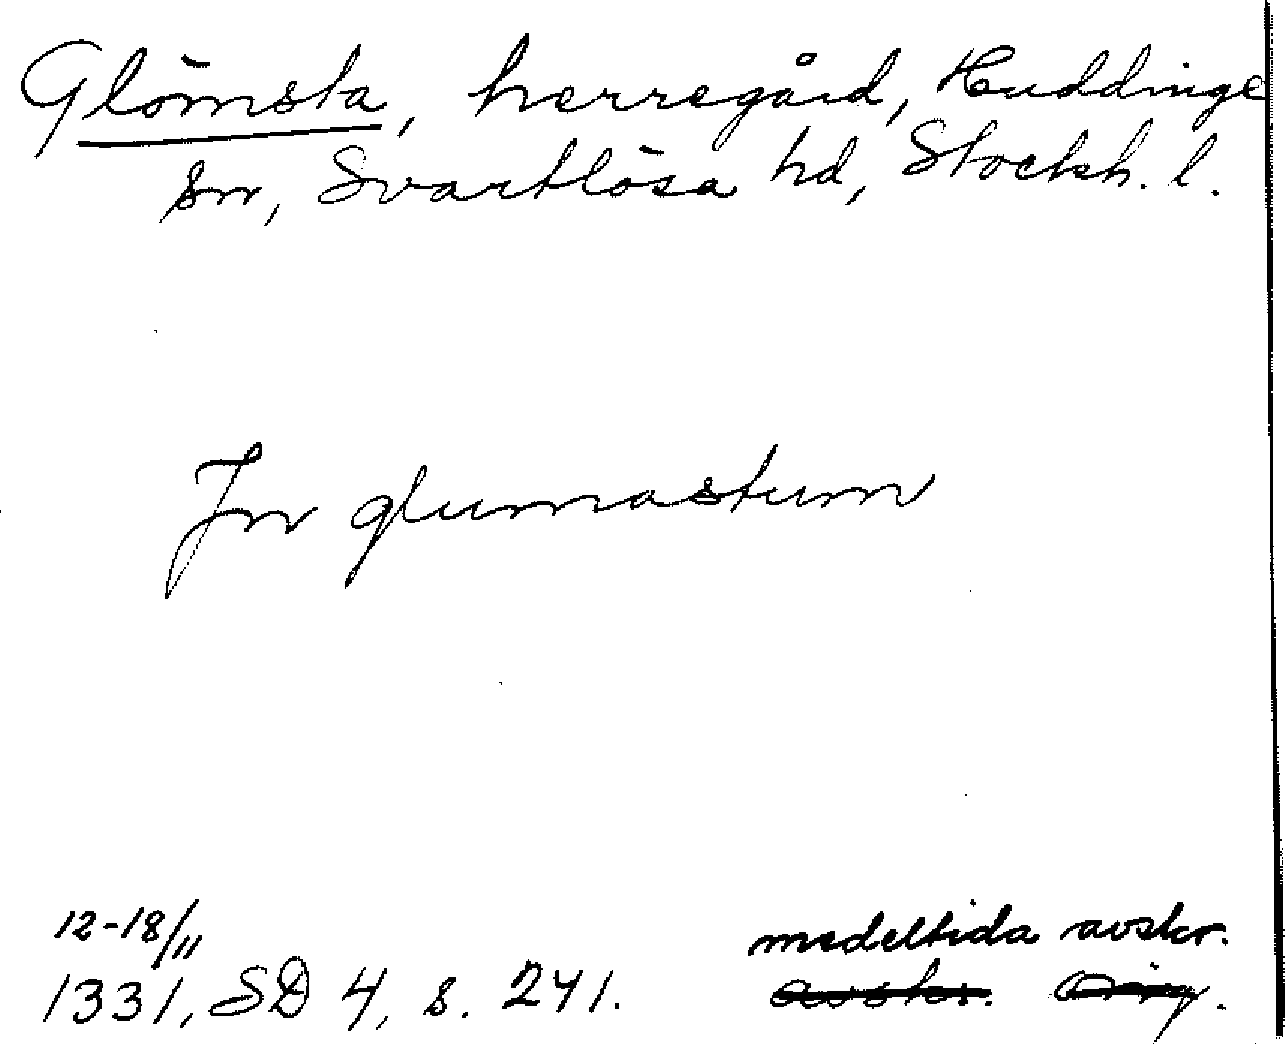 Glömsta, herregård, Huddinge
sn, Svartlösa hd, Stockh. l.
Jn glumastum
12-18/11
medeltida avskr.
1331, SD 4, s. 241. avskr. Orig.